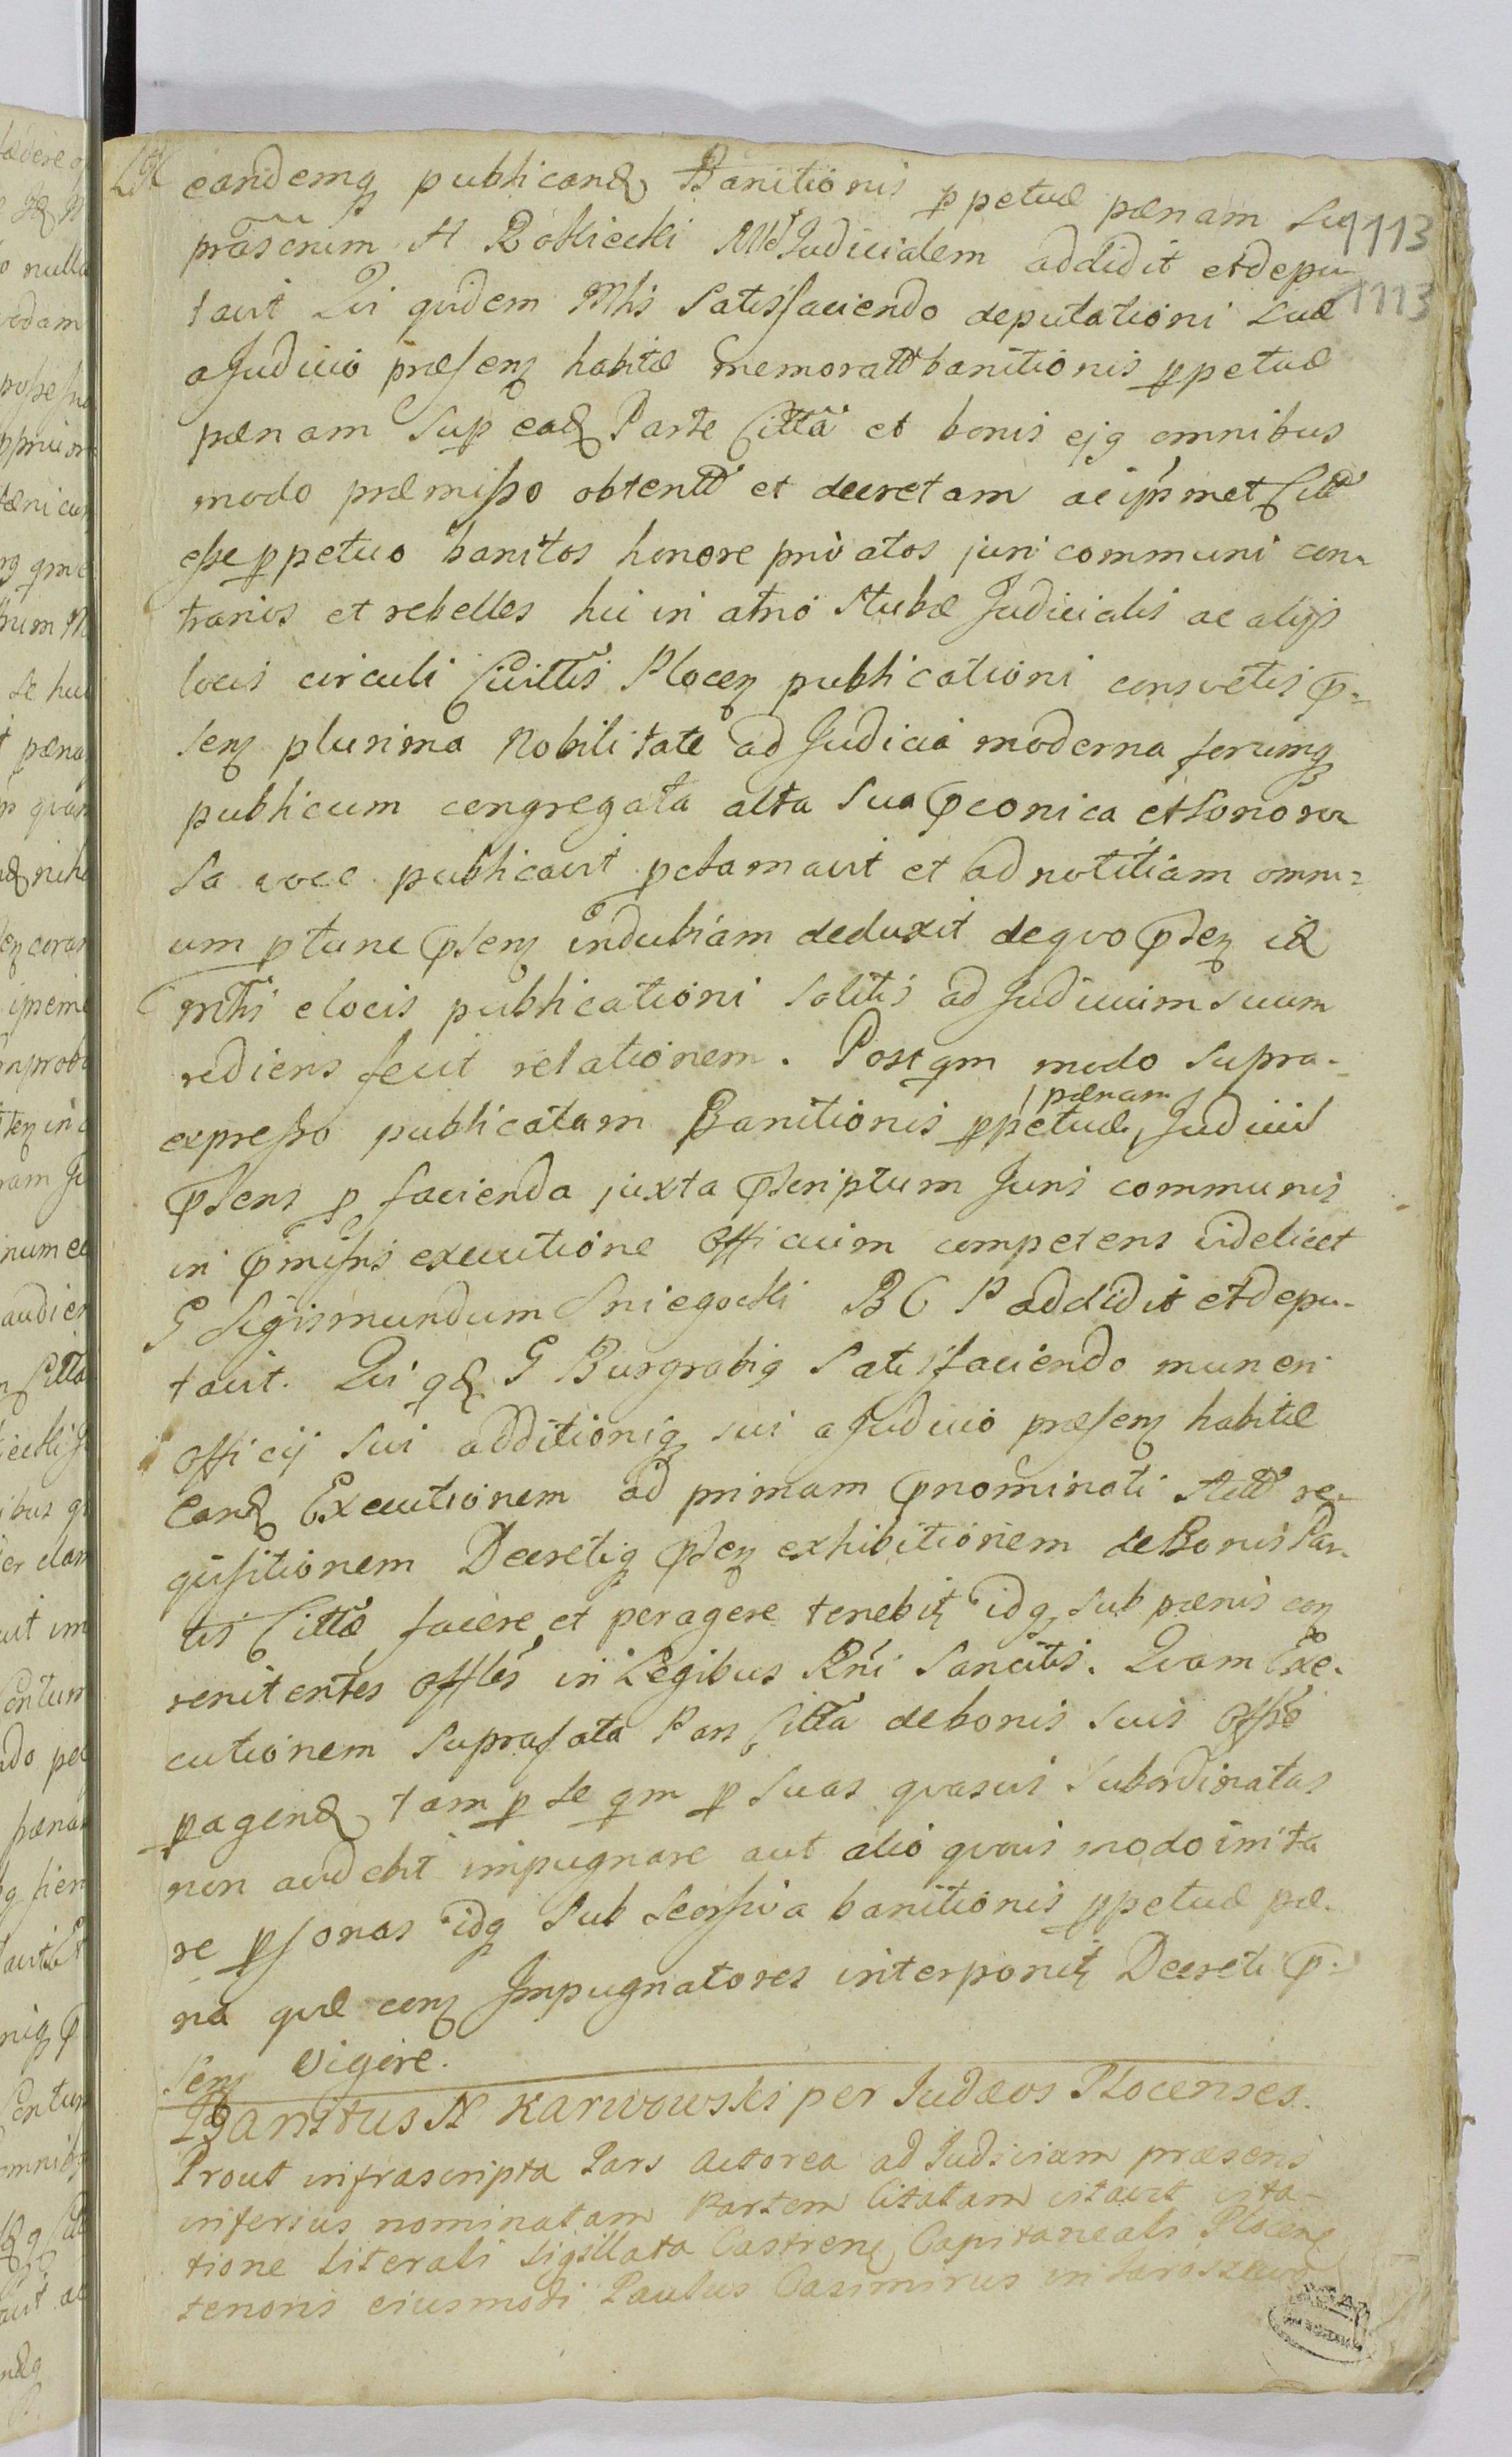 eandemq publicand Banitionis ppetuæ pænam
1113
præsenim N Roklicki Mlē Judicialem addidit et depu-
1113
tavit Qui quidem Mlis satisfaciendo deputationi suæ
a Judicio præsenz habitæ memoratæ banitionis ppetuæ
pænam sup ead Parte Cittā et bonis ejq omnibus
modo præmisso obtentæ et decretam ac ipsmet Citt
esse ppetuo banitos honore privatos juri communi con-
trarios et rebelles hic in atrio Stubæ Judicialis ac alijs
locis circuli Civittis Plocenz publicationi consvetis p-
senz plurima Nobilitate ad Judicia moderna forumq
publicum congregata alta sua pconica et sonoro
sa voce publicavit pclamavit et ad notitiam omni-
um p tunc psenz indubiam deduxit de quo psenz id
mlis e locis publicationi solitis ad Judicium suum
rediens fecit relationem. Post qm modo supra-
pænam
expresso publicatam Banitionis ppetuæ Judiciū
psens p facienda juxta pscriptum Juris communis
in pmissis executione officium competens videlicet
G Sigismundum Sniegocki B C P addidit et depu-
tavit. Qui qd G Burgrabiq satisfaciendo muneri
officij sui additioniq sui a Judicio præsenz habitæ
eand Executionem ad primam pnominati Act re-
quisitionem Decretiq psenz exhibitionem de Bonis Par-
tis Cittæ facere et peragere tenebit idq sub pænis con
renitentes offles in Legibus Rni sancitis. Quam Exe-
cutionem suprafata Pars Citta de bonis suis offſo
pagend tam p se qm p suas quasvis subordinatas
non audebit impugnare aut alio quovis modo irrita
re psonas idq sub seorsiva banitionis ppetuæ pæ-
na quæ conz Impugnatores interponitz Decreti p-
senz vigore.
Banitus N Karwowski per Judæos Plocenses.
Prout infrascripta Pars Actorea ad Judicium præsens
inferius nominatam Partem Citatam citavit cita-
tione literali sigillata Castrenz Capitaneali Plocenz
tenoris eiusmodi Paulus Casimirus in